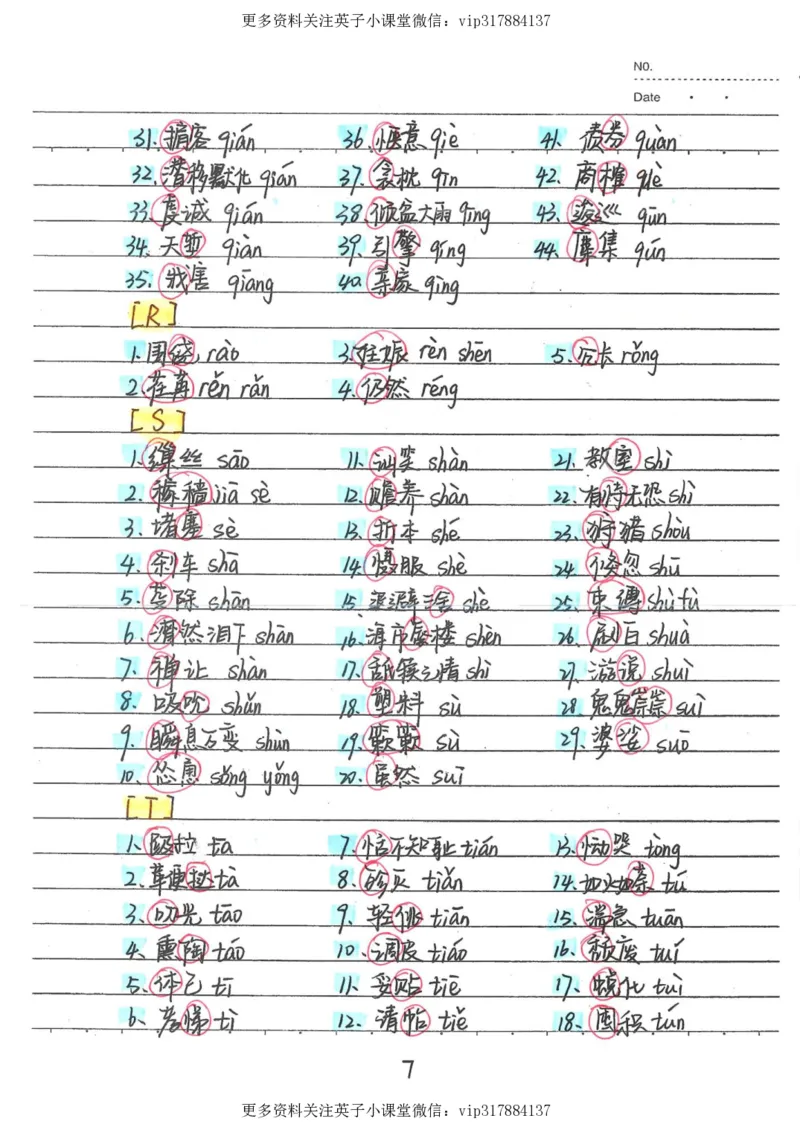 更多资料关注英子小课堂微信：vip317884137
NO.
Date
31、掮客 qián 36、惬意 qiè 41、债券 quàn
32、潜移默化 qián 37、衾枕 qīn 42、商榷 què
33、虔诚 qián 38、倾盆大雨 qīng 43、逡巡 qūn
34、天堑 qiàn 39、引擎 qíng 44、麇集 qún
35、戕害 qiāng 40、亲家 qìng
[R]
1、围绕 rào 3、妊娠 rèn shēn 5、冗长 rǒng
2、荏苒 rěn rǎn 4、仍然 réng
[S]
1、缫丝 sāo 11、讪笑 shàn 21、教室 shì
2、稼穑 jià sè 12、赡养 shàn 22、有恃无恐 shì
3、堵塞 sè 13、折本 shé 23、狩猎 shòu
4、刹车 shā 14、慑服 shè 24、倏忽 shū
5、芟除 shān 15、退避三舍 shè 25、束缚 shù fù
6、潸然泪下 shān 16、海市蜃楼 shèn 26、刷白 shuà
7、禅让 shàn 17、舐犊之情 shì 27、游说 shuì
8、吸吮 shǔn 18、塑料 sù 28、鬼鬼祟祟 suì
9、瞬息万变 shùn 19、簌簌 sù 29、婆娑 suō
10、怂恿 sǒng yǒng 20、虽然 suī
[T]
1、趿拉 tā 7、恬不知耻 tián 13、恸哭 tòng
2、鞭挞 tà 8、殄灭 tiǎn 14、如火如荼 tú
3、叨光 tāo 9、轻佻 tiāo 15、湍急 tuān
4、熏陶 táo 10、调皮 tiáo 16、颓废 tuí
5、体己 tī 11、妥贴 tiē 17、蜕化 tuì
6、孝悌 tì 12、请帖 tiě 18、囤积 tún
7
更多资料关注英子小课堂微信：vip317884137